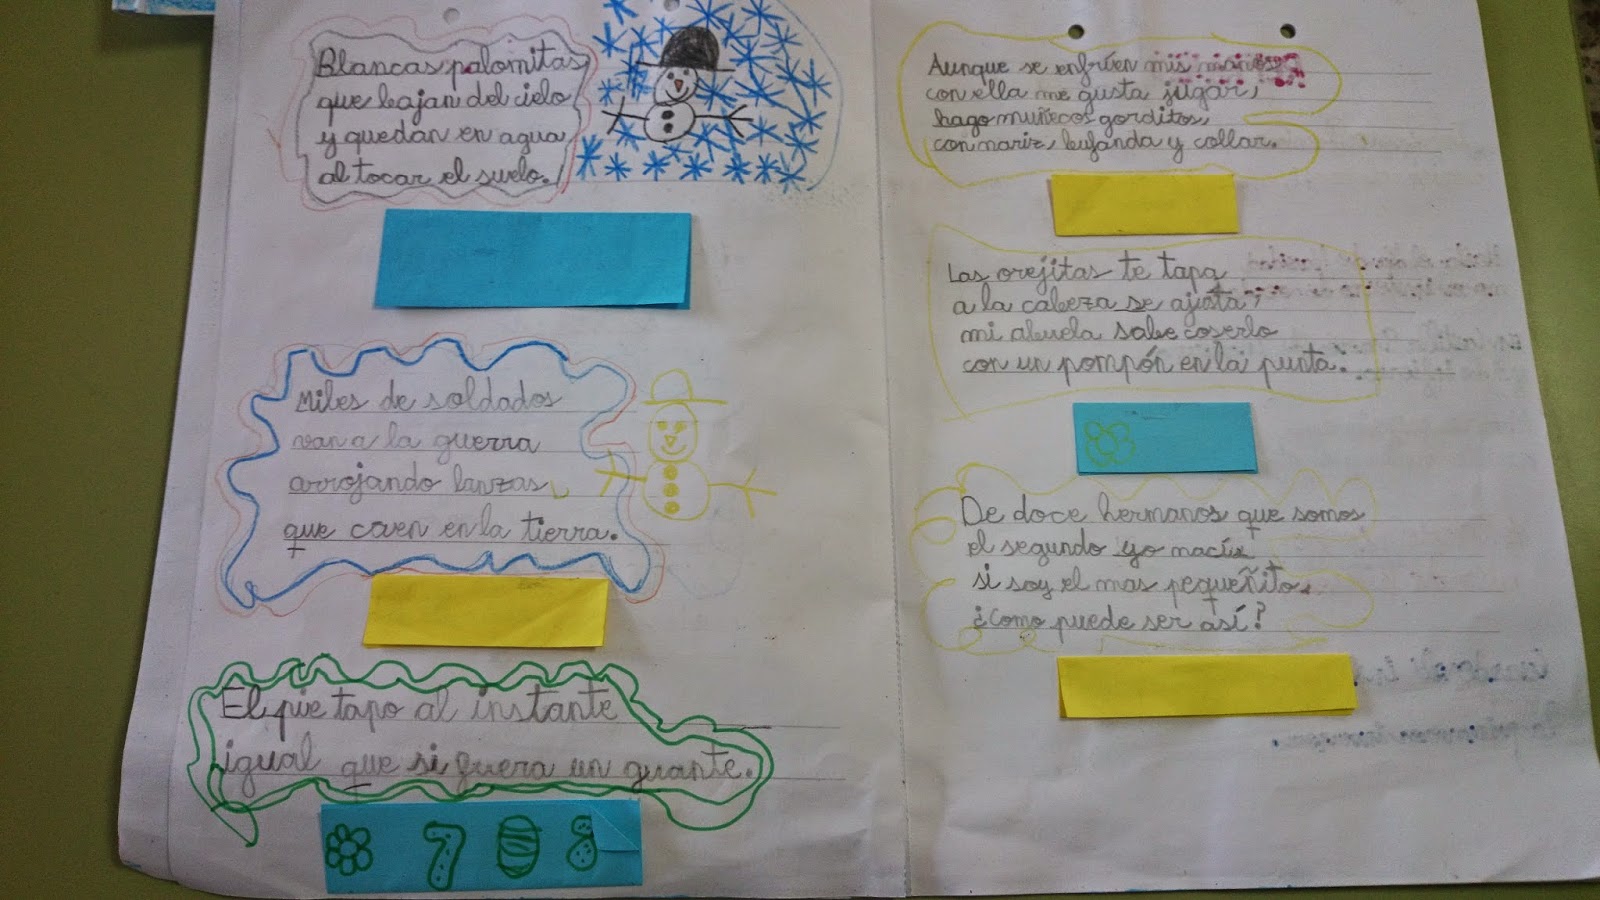 Blancas palomitas
que bajan del cielo
y quedan en agua
al tocar el suelo.
Miles de soldados
van a la guerra
arrojando lanzas
que caen en la tierra.
El pie tapo al instante
igual que si fuera un guante.
7 0 8
Aunque se enfríen mis manos
con ella me gusta jugar,
hago muñecos gorditos,
con nariz, bufanda y collar.
Las orejitas te tapa
a la cabeza se ajusta,
mi abuela sabe coserlo
con un pompón en la punta.
De doce hermanos que somos
el segundo yo nací
si soy el mas pequeñito.
¿Como puede ser así?